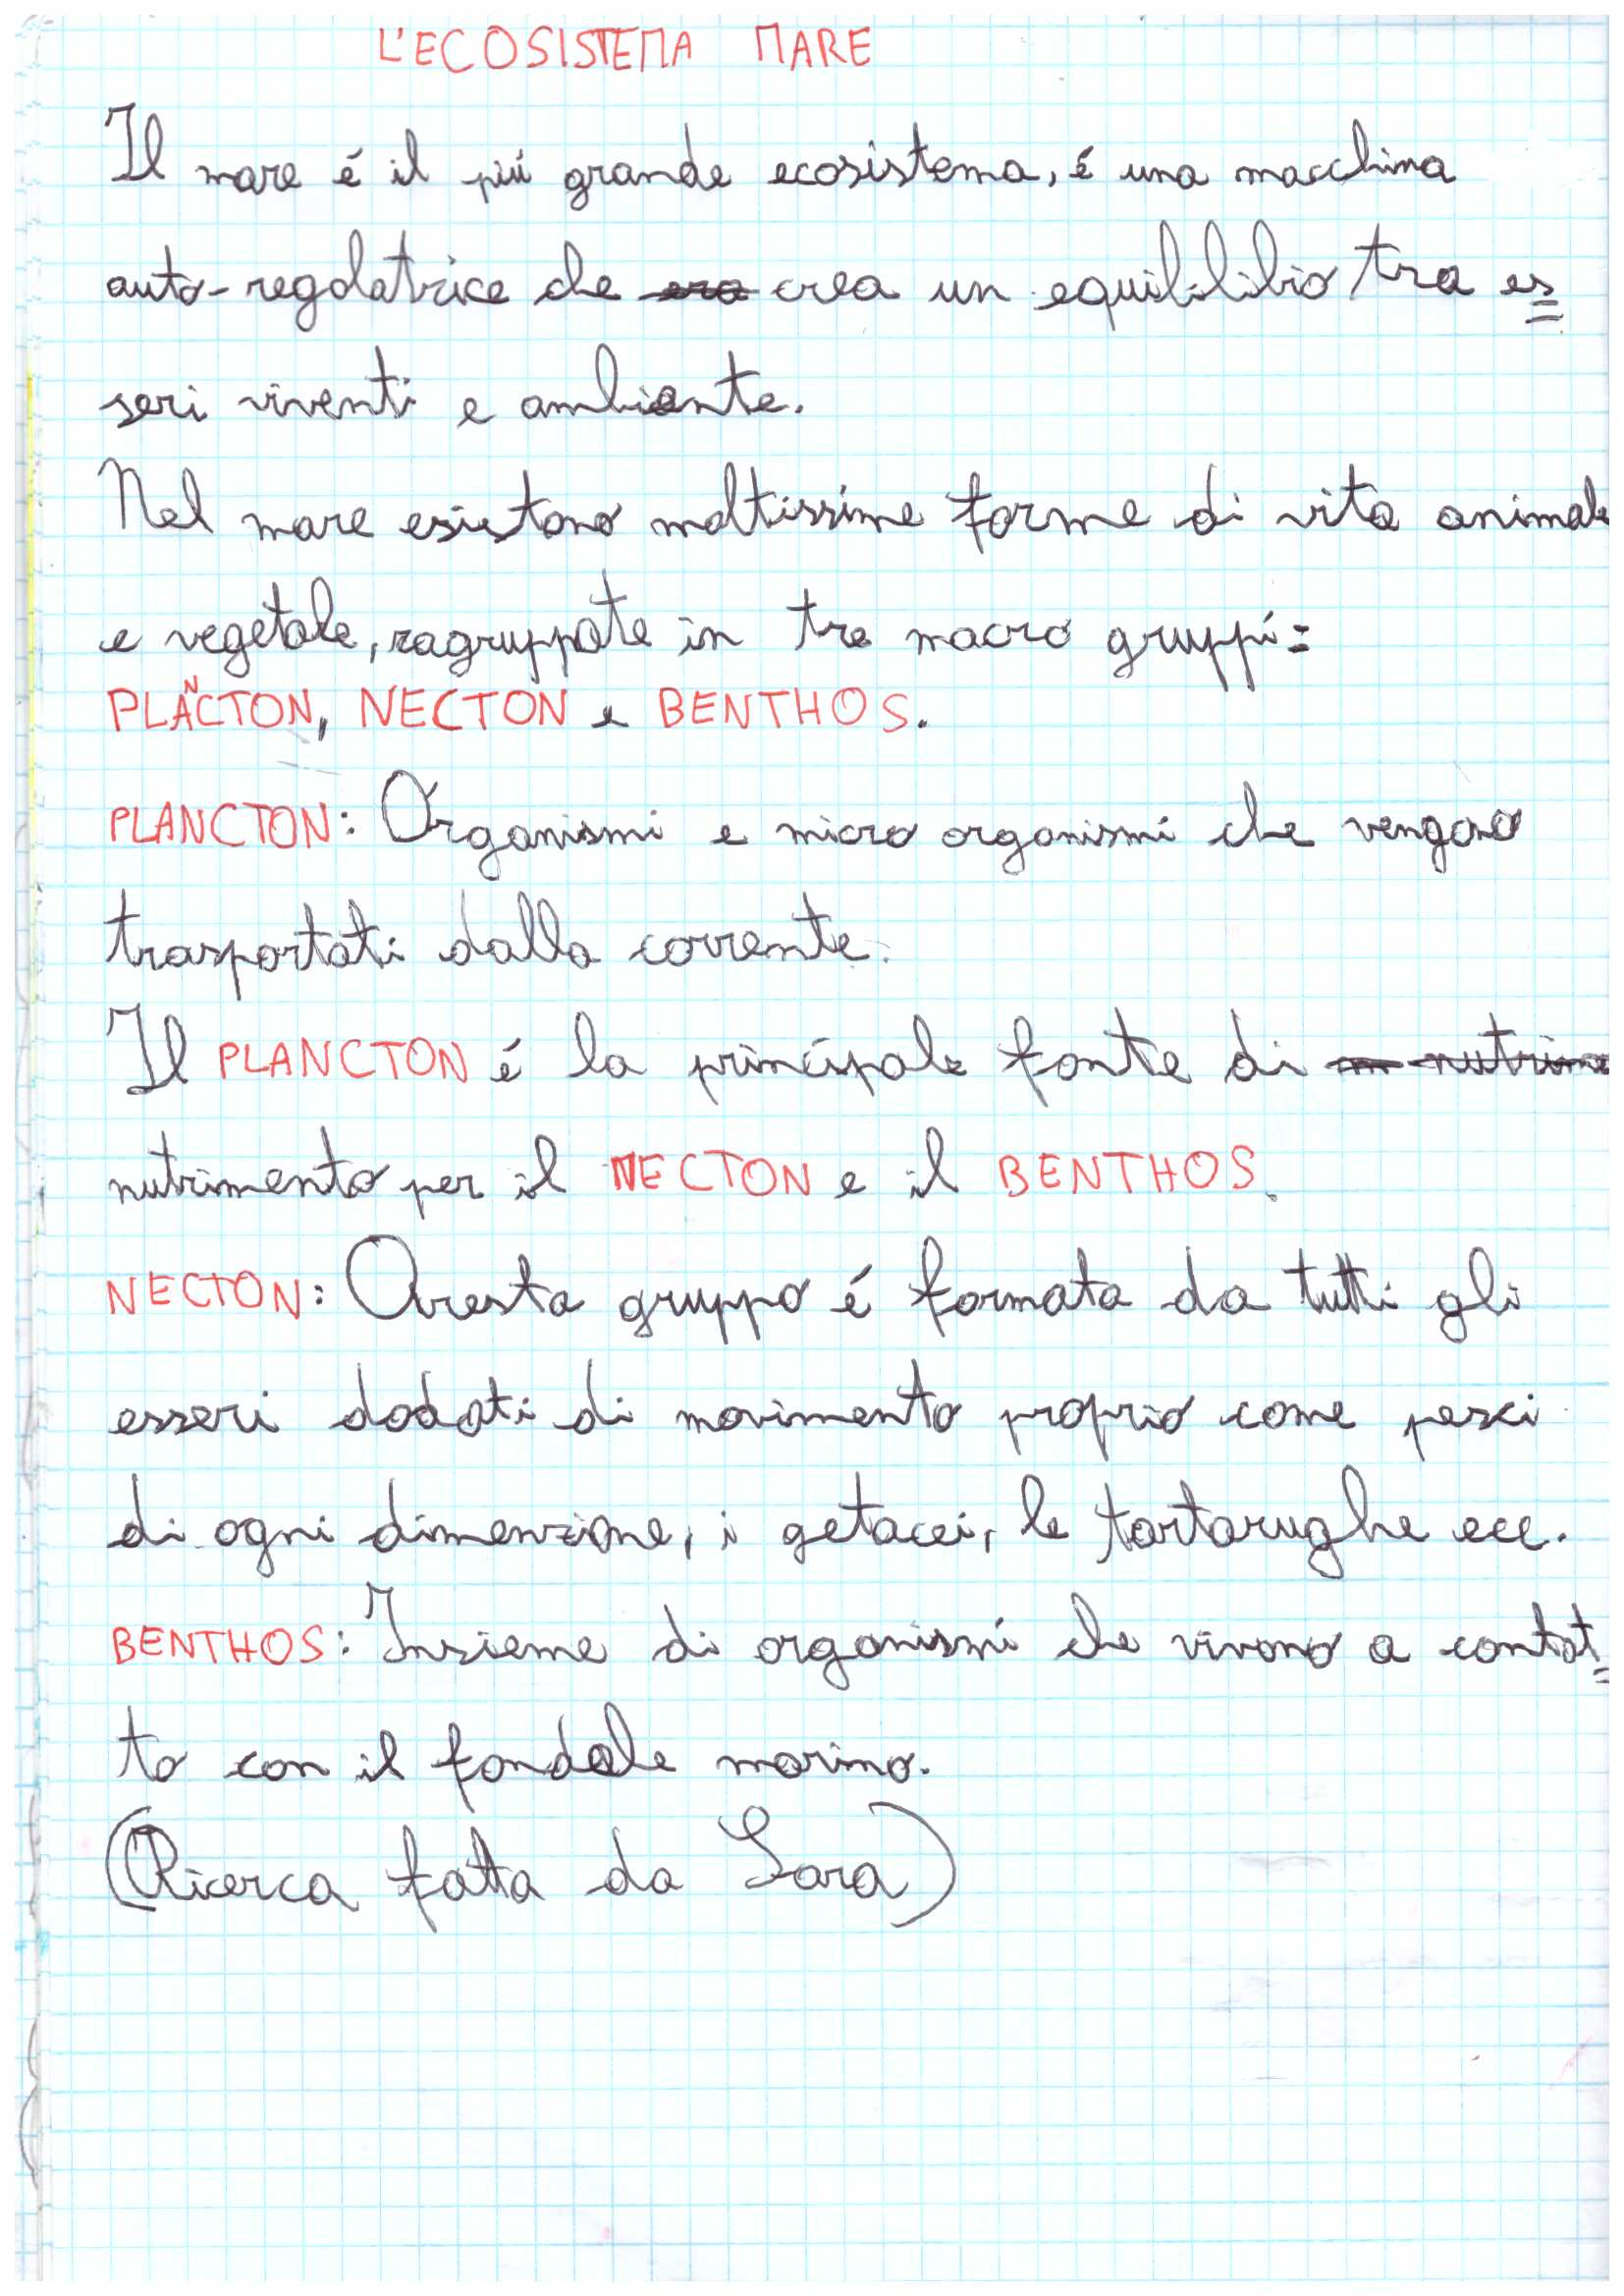 L'ECOSISTEMA MARE
Il mare é il piú grande ecosistema, é una macchina
auto-regolatrice che era crea un equililibio tra es=
seri viventi e ambiente.
Nel mare esistono moltissime forme di vita animale
e vegetale, ragruppate in tre macro gruppi:
PLANCTON, NECTON e BENTHOS.
PLANCTON: Organismi e micro organismi che vengono
trasportati dalla corrente.
Il PLANCTON é la principale fonte di nutrime
nutrimento per il NECTON e il BENTHOS.
NECTON: Questa gruppo é formata da tutti gli
esseri dodati di movimento proprio come pesci
di ogni dimenzione, i getacei, le tartarughe ecc.
BENTHOS: Insieme di organismi che vivono a contat=
to con il fondale marino.
(Ricerca fatta da Sara)